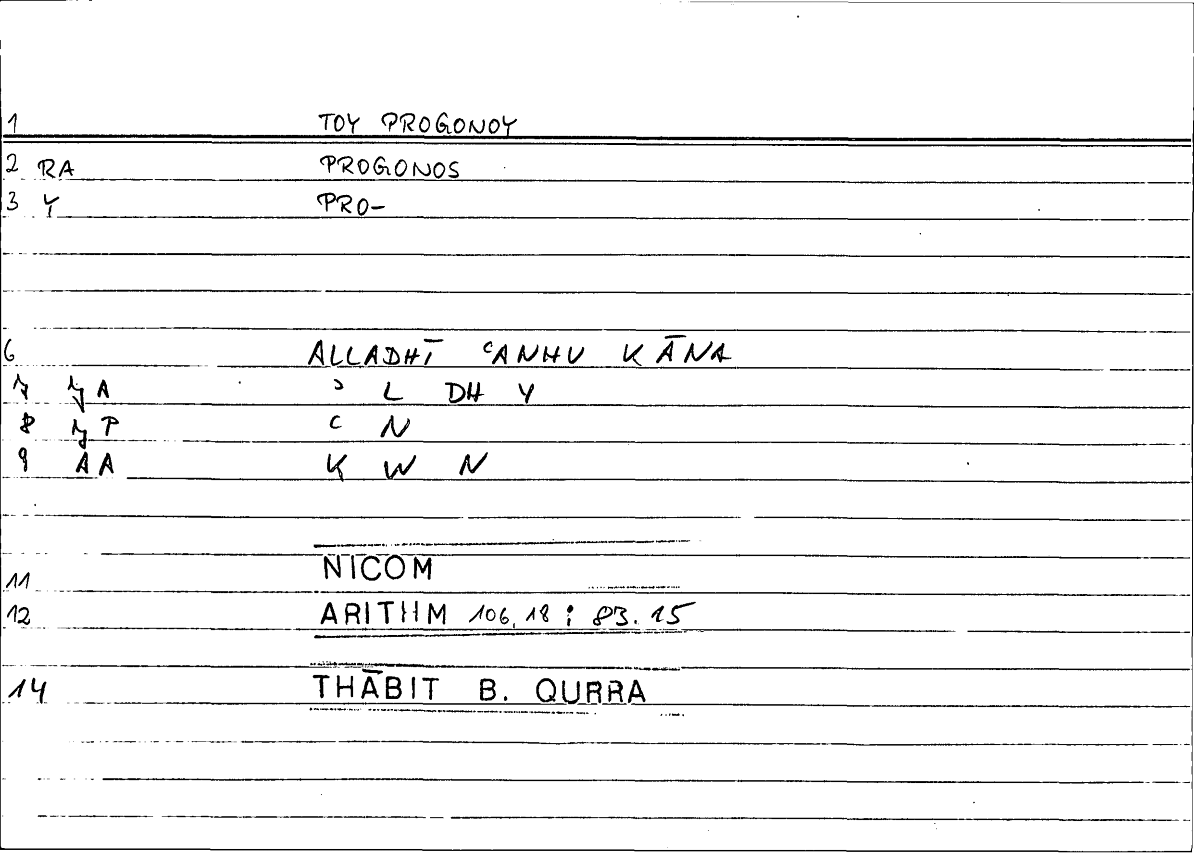 1 TOY PROGONOY
2 RA PROGONOS
3 Y PRO-
6 ALLADHĪ ʿANHU KĀNA
7 A ʾ L DH Y
8 P ʿ N
9 AA K W N
11 NICOM
12 ARITHM 106,18 ; 83.15
14 THĀBIT B. QURRA